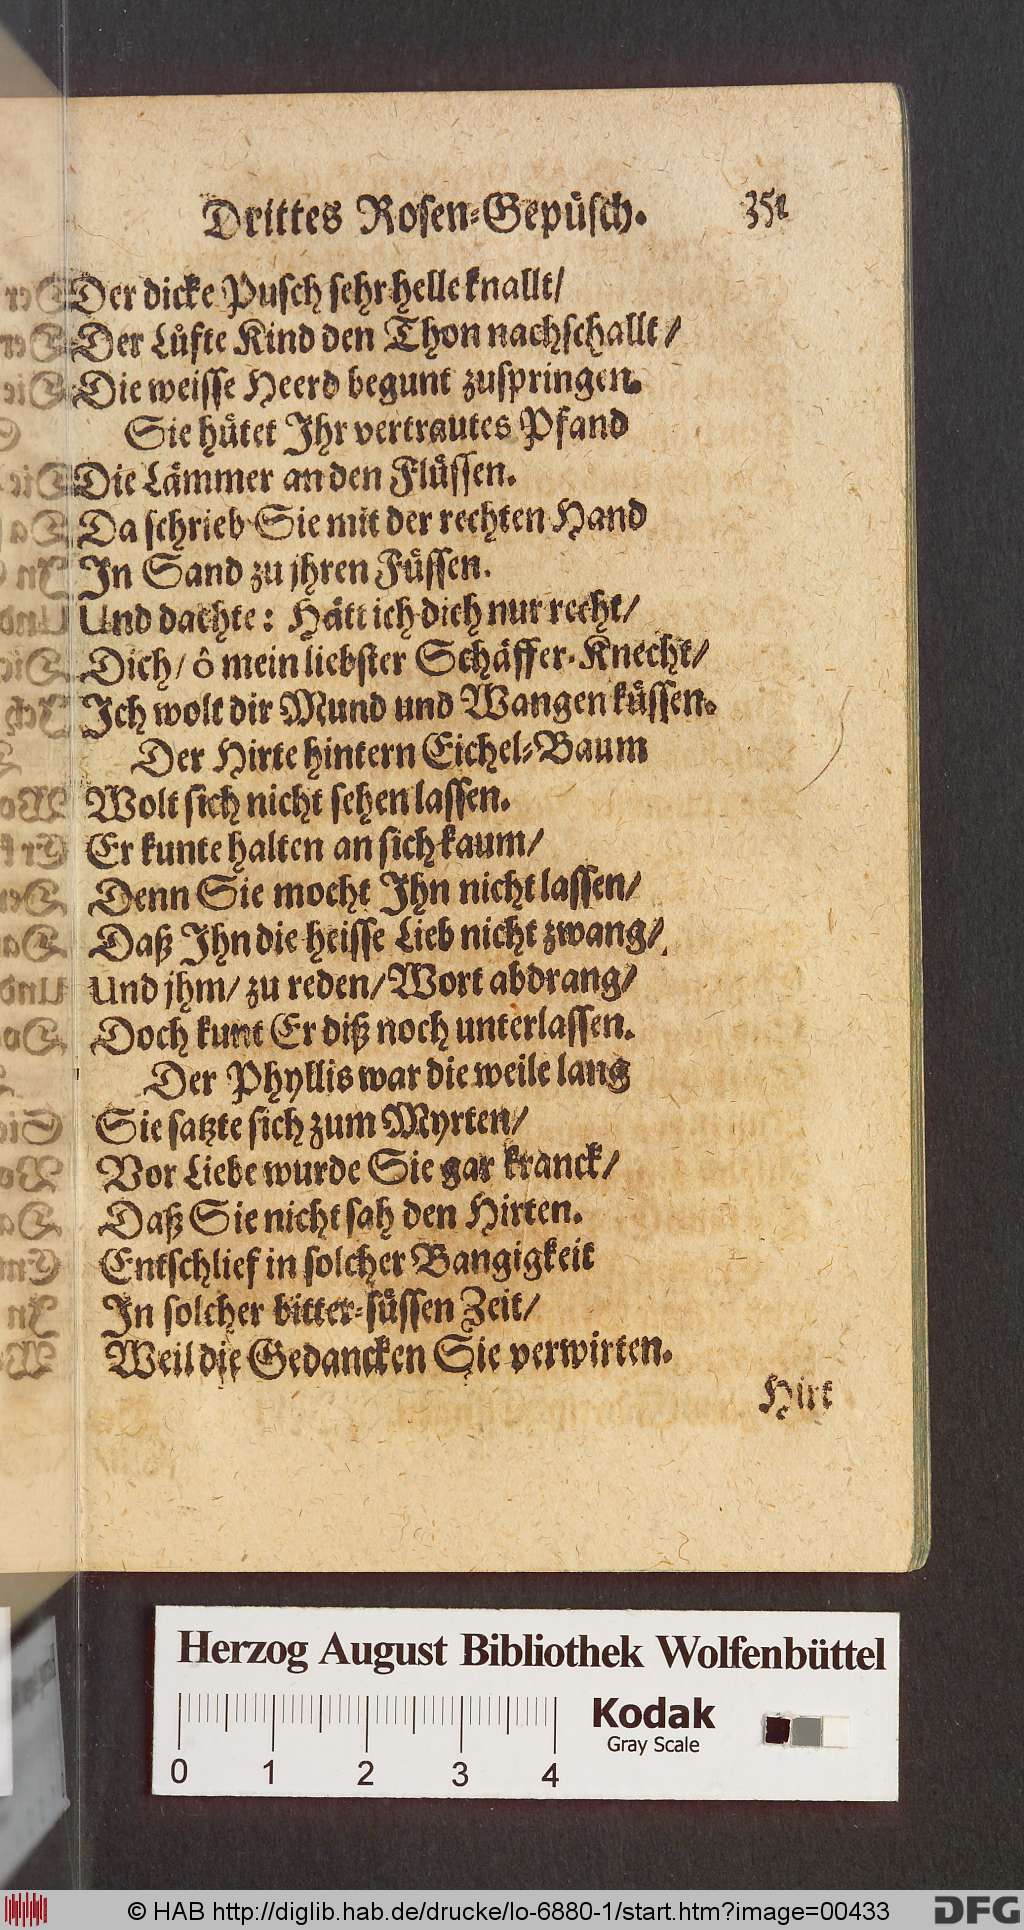 Drittes Rosen-Gepüsch. 351
Der dicke Pusch sehr helle knallt/
Der Lüfte Kind den Thon nachschallt/
Die weisse Heerd begunt zuspringen.
Sie hütet Ihr vertrautes Pfand
Die Lämmer an den Flüssen.
Da schrieb Sie mit der rechten Hand
In Sand zu jhren Füssen.
Und dachte: Hätt ich dich nur recht/
Dich/ ô mein liebster Schäffer-Knecht/
Ich wolt dir Mund und Wangen küssen.
Der Hirte hintern Eichel-Baum
Wolt sich nicht sehen lassen.
Er kunte halten an sich kaum/
Denn Sie mocht Ihn nicht lassen/
Daß Ihn die heisse Lieb nicht zwang/
Und jhm/ zu reden/ Wort abdrang/
Doch kunt Er diß noch unterlassen.
Der Phyllis war die weile lang
Sie satzte sich zum Myrten/
Vor Liebe wurde Sie gar kranck/
Daß Sie nicht sah den Hirten.
Entschlief in solcher Bangigkeit
In solcher bitter-süssen Zeit/
Weil die Gedancken Sie verwirten.
Hirt
Herzog August Bibliothek Wolfenbüttel
Kodak
Gray Scale
0 1 2 3 4
© HAB http://diglib.hab.de/drucke/lo-6880-1/start.htm?image=00433
DFG